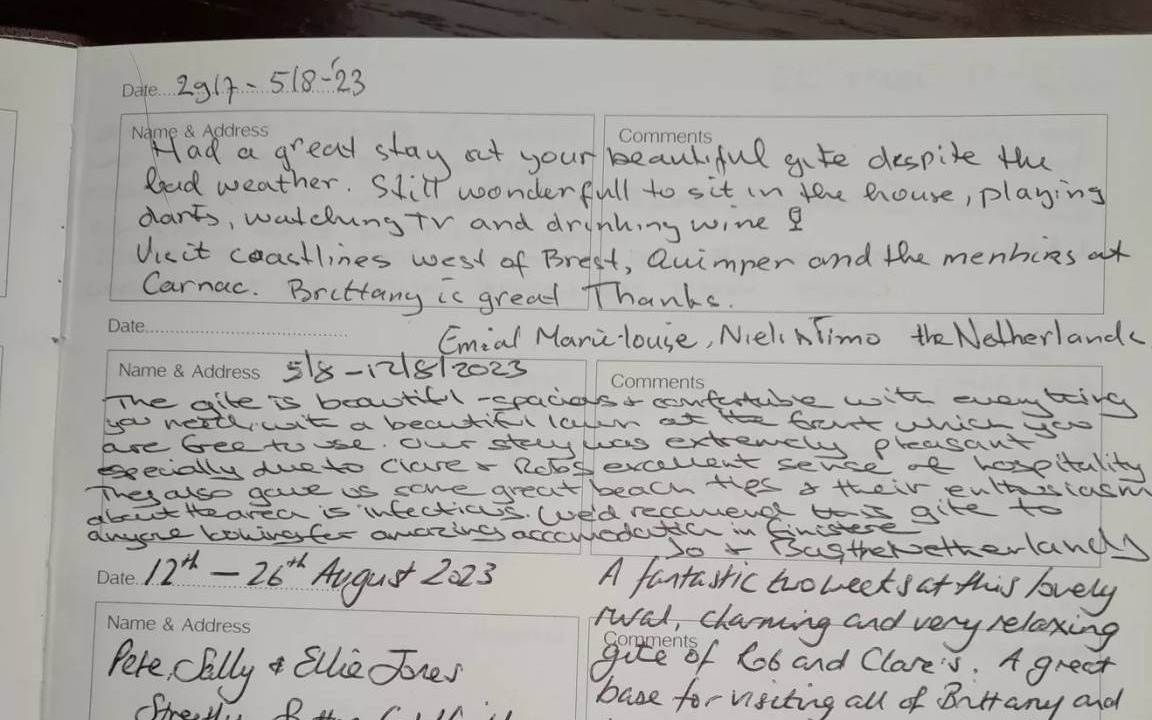 Date....29/7 - 5/8-'23
Name & Address
Comments
Had a great stay at your beautiful gite despite the
bad weather. Still wonderfull to sit in the house, playing
darts, watching TV and drinking wine
Visit coastlines west of Brest, Quimper and the menhirs at
Carnac. Brittany is great Thanks.
Date
Marie-louise, Niels Timo the Netherlands
Name & Address 5/8 - 12/8/2023
Comments
The gite is beautiful - spacious + comfortable with everything
you need, with a beautiful lawn at the front which you
are free to use. Our stay was extremely pleasant
especially due to Clare + Robs excellent sense of hospitality
They also gave us some great beach tips & their enthusiasm
about the area is infectious. We'd recommend this gite to
anyone looking for amazing accomodation in Finistere
Jo + Bas, the Netherlands
Date. 12th - 26th August 2023
Name & Address
Pete, Sally & Ellie Jones
A fantastic two weeks at this lovely
rural, charming and very relaxing
Comments
gite of Rob and Clare's. A great
base for visiting all of Brittany and